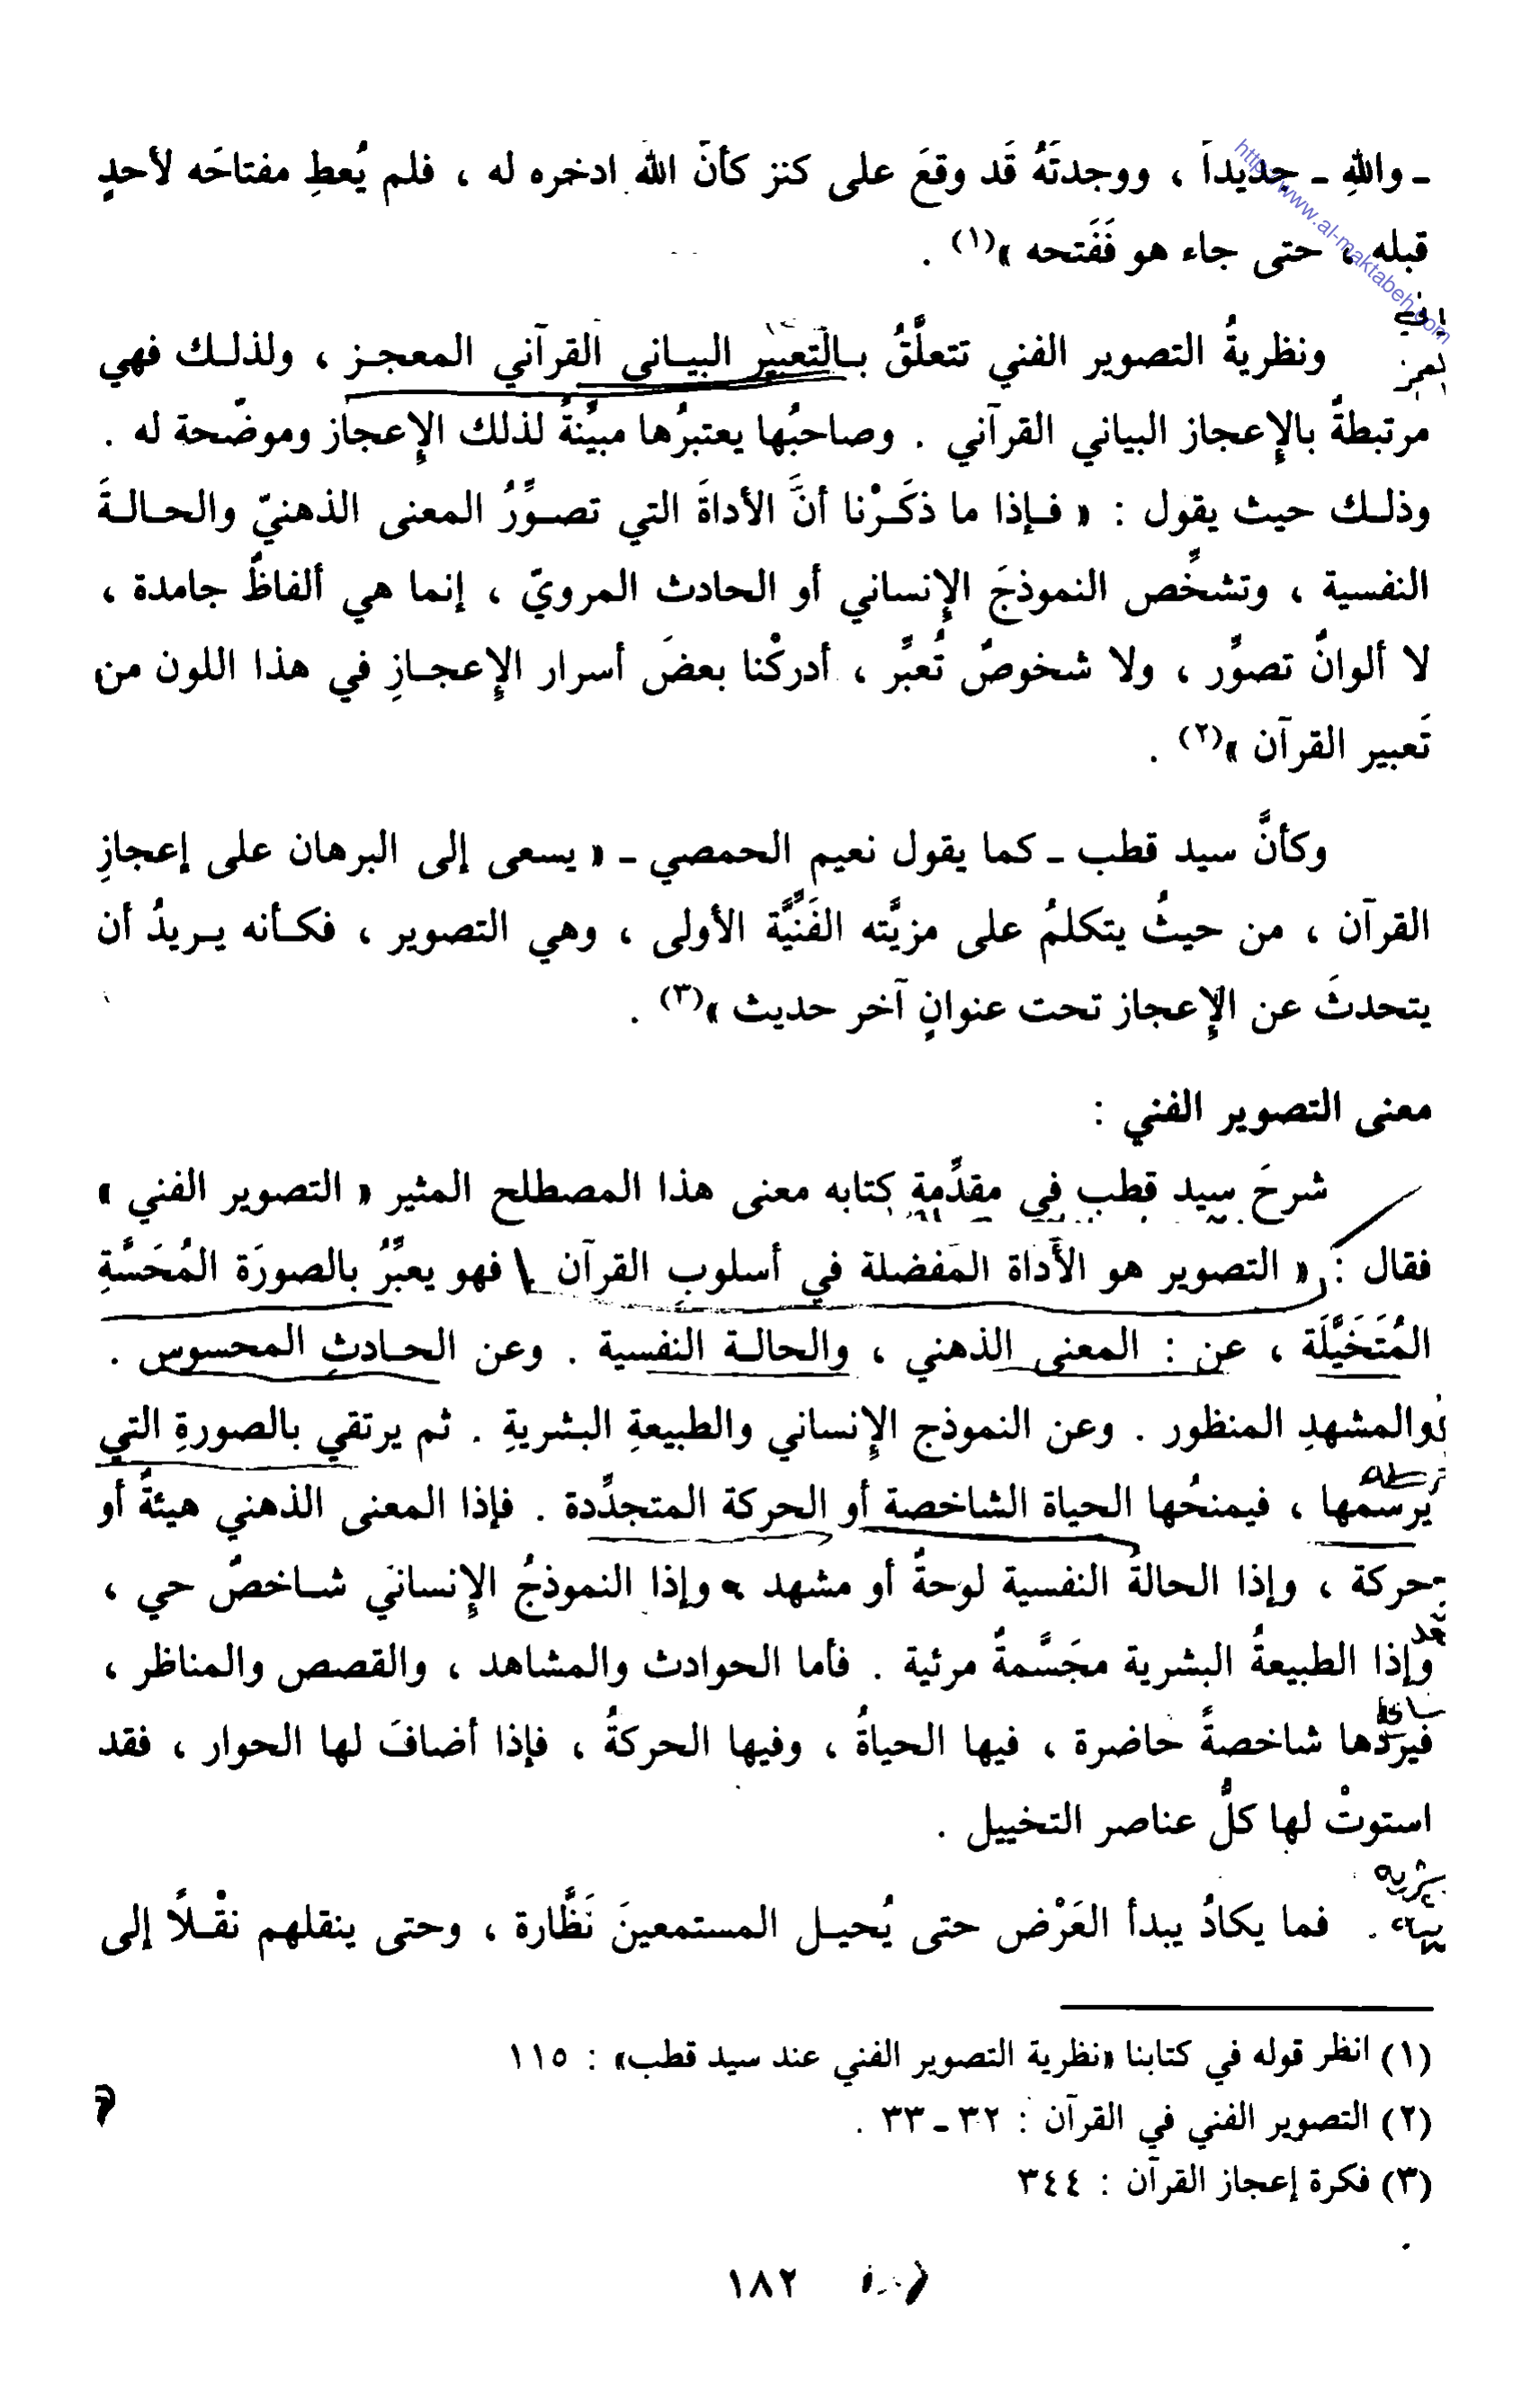 ـ واللهِ ـ جديداً ، ووجدتَهُ قَد وقعَ على كنز كأنَّ اللهَ ادخره له ، فلم يُعطِ مفتاحَه لأحدٍ
قبله ، حتى جاء هو فَفَتحه »(١) .
ونظريةُ التصوير الفني تتعلَّقُ بـالتعبير البيـاني القرآني المعجـز ، ولذلـك فهي
مرتبطةٌ بالإعجاز البياني القرآني . وصاحبُها يعتبرُها مبيِّنةً لذلك الإعجاز وموضِّحة له .
وذلـك حيث يقول : « فـإذا ما ذكَـرْنا أنَّ الأداةَ التي تصـوِّرُ المعنى الذهنيّ والحـالـةَ
النفسية ، وتشخِّص النموذجَ الإنساني أو الحادث المرويّ ، إنما هي ألفاظٌ جامدة ،
لا ألوانٌ تصوِّر ، ولا شخوصٌ تُعبِّر ، أدركْنا بعضَ أسرار الإعجـازِ في هذا اللون من
تَعبير القرآن »(٢) .
وكأنَّ سيد قطب ـ كما يقول نعيم الحمصي ـ « يسعى إلى البرهان على إعجازِ
القرآن ، من حيثُ يتكلمُ على مزيَّته الفَنِّيَّة الأولى ، وهي التصوير ، فكـأنه يـريدُ أن
يتحدثَ عن الإعجاز تحت عنوانٍ آخر حديث »(٣) .
معنى التصوير الفني :
شرحَ سيد قطب في مقدِّمة كتابه معنى هذا المصطلح المثير « التصوير الفني »
فقال : « التصوير هو الأداة المفضلة في أسلوبِ القرآن . فهو يعبِّرُ بالصورَة المُحَسَّةِ
المُتَخَيَّلَة ، عن : المعنى الذهني ، والحالـة النفسية . وعن الحـادثِ المحسوس .
والمشهدِ المنظور . وعن النموذج الإنساني والطبيعةِ البشريةِ . ثم يرتقي بالصورةِ التي
يرسمُها ، فيمنحُها الحياة الشاخصة أو الحركة المتجدِّدة . فإذا المعنى الذهني هيئةٌ أو
حركة ، وإذا الحالةُ النفسية لوحةٌ أو مشهد ، وإذا النموذجُ الإنساني شـاخصٌ حي ،
وإذا الطبيعةُ البشرية مجَسَّمةٌ مرئية . فأما الحوادث والمشاهد ، والقصص والمناظر ،
فيردُّها شاخصةً حاضرة ، فيها الحياةُ ، وفيها الحركةُ ، فإذا أضافَ لها الحوار ، فقد
استوتْ لها كلُّ عناصر التخييل .
فما يكادُ يبدأ العَرْض حتى يُحيـل المستمعينَ نَظَّارة ، وحتى ينقلهم نقْـلاً إلى
(١) انظر قوله في كتابنا «نظرية التصوير الفني عند سيد قطب» : ١١٥
(٢) التصوير الفني في القرآن : ٣٢ ـ ٣٣ .
(٣) فكرة إعجاز القرآن : ٣٤٤
١٨٢
http://www.al-maktabeh.com